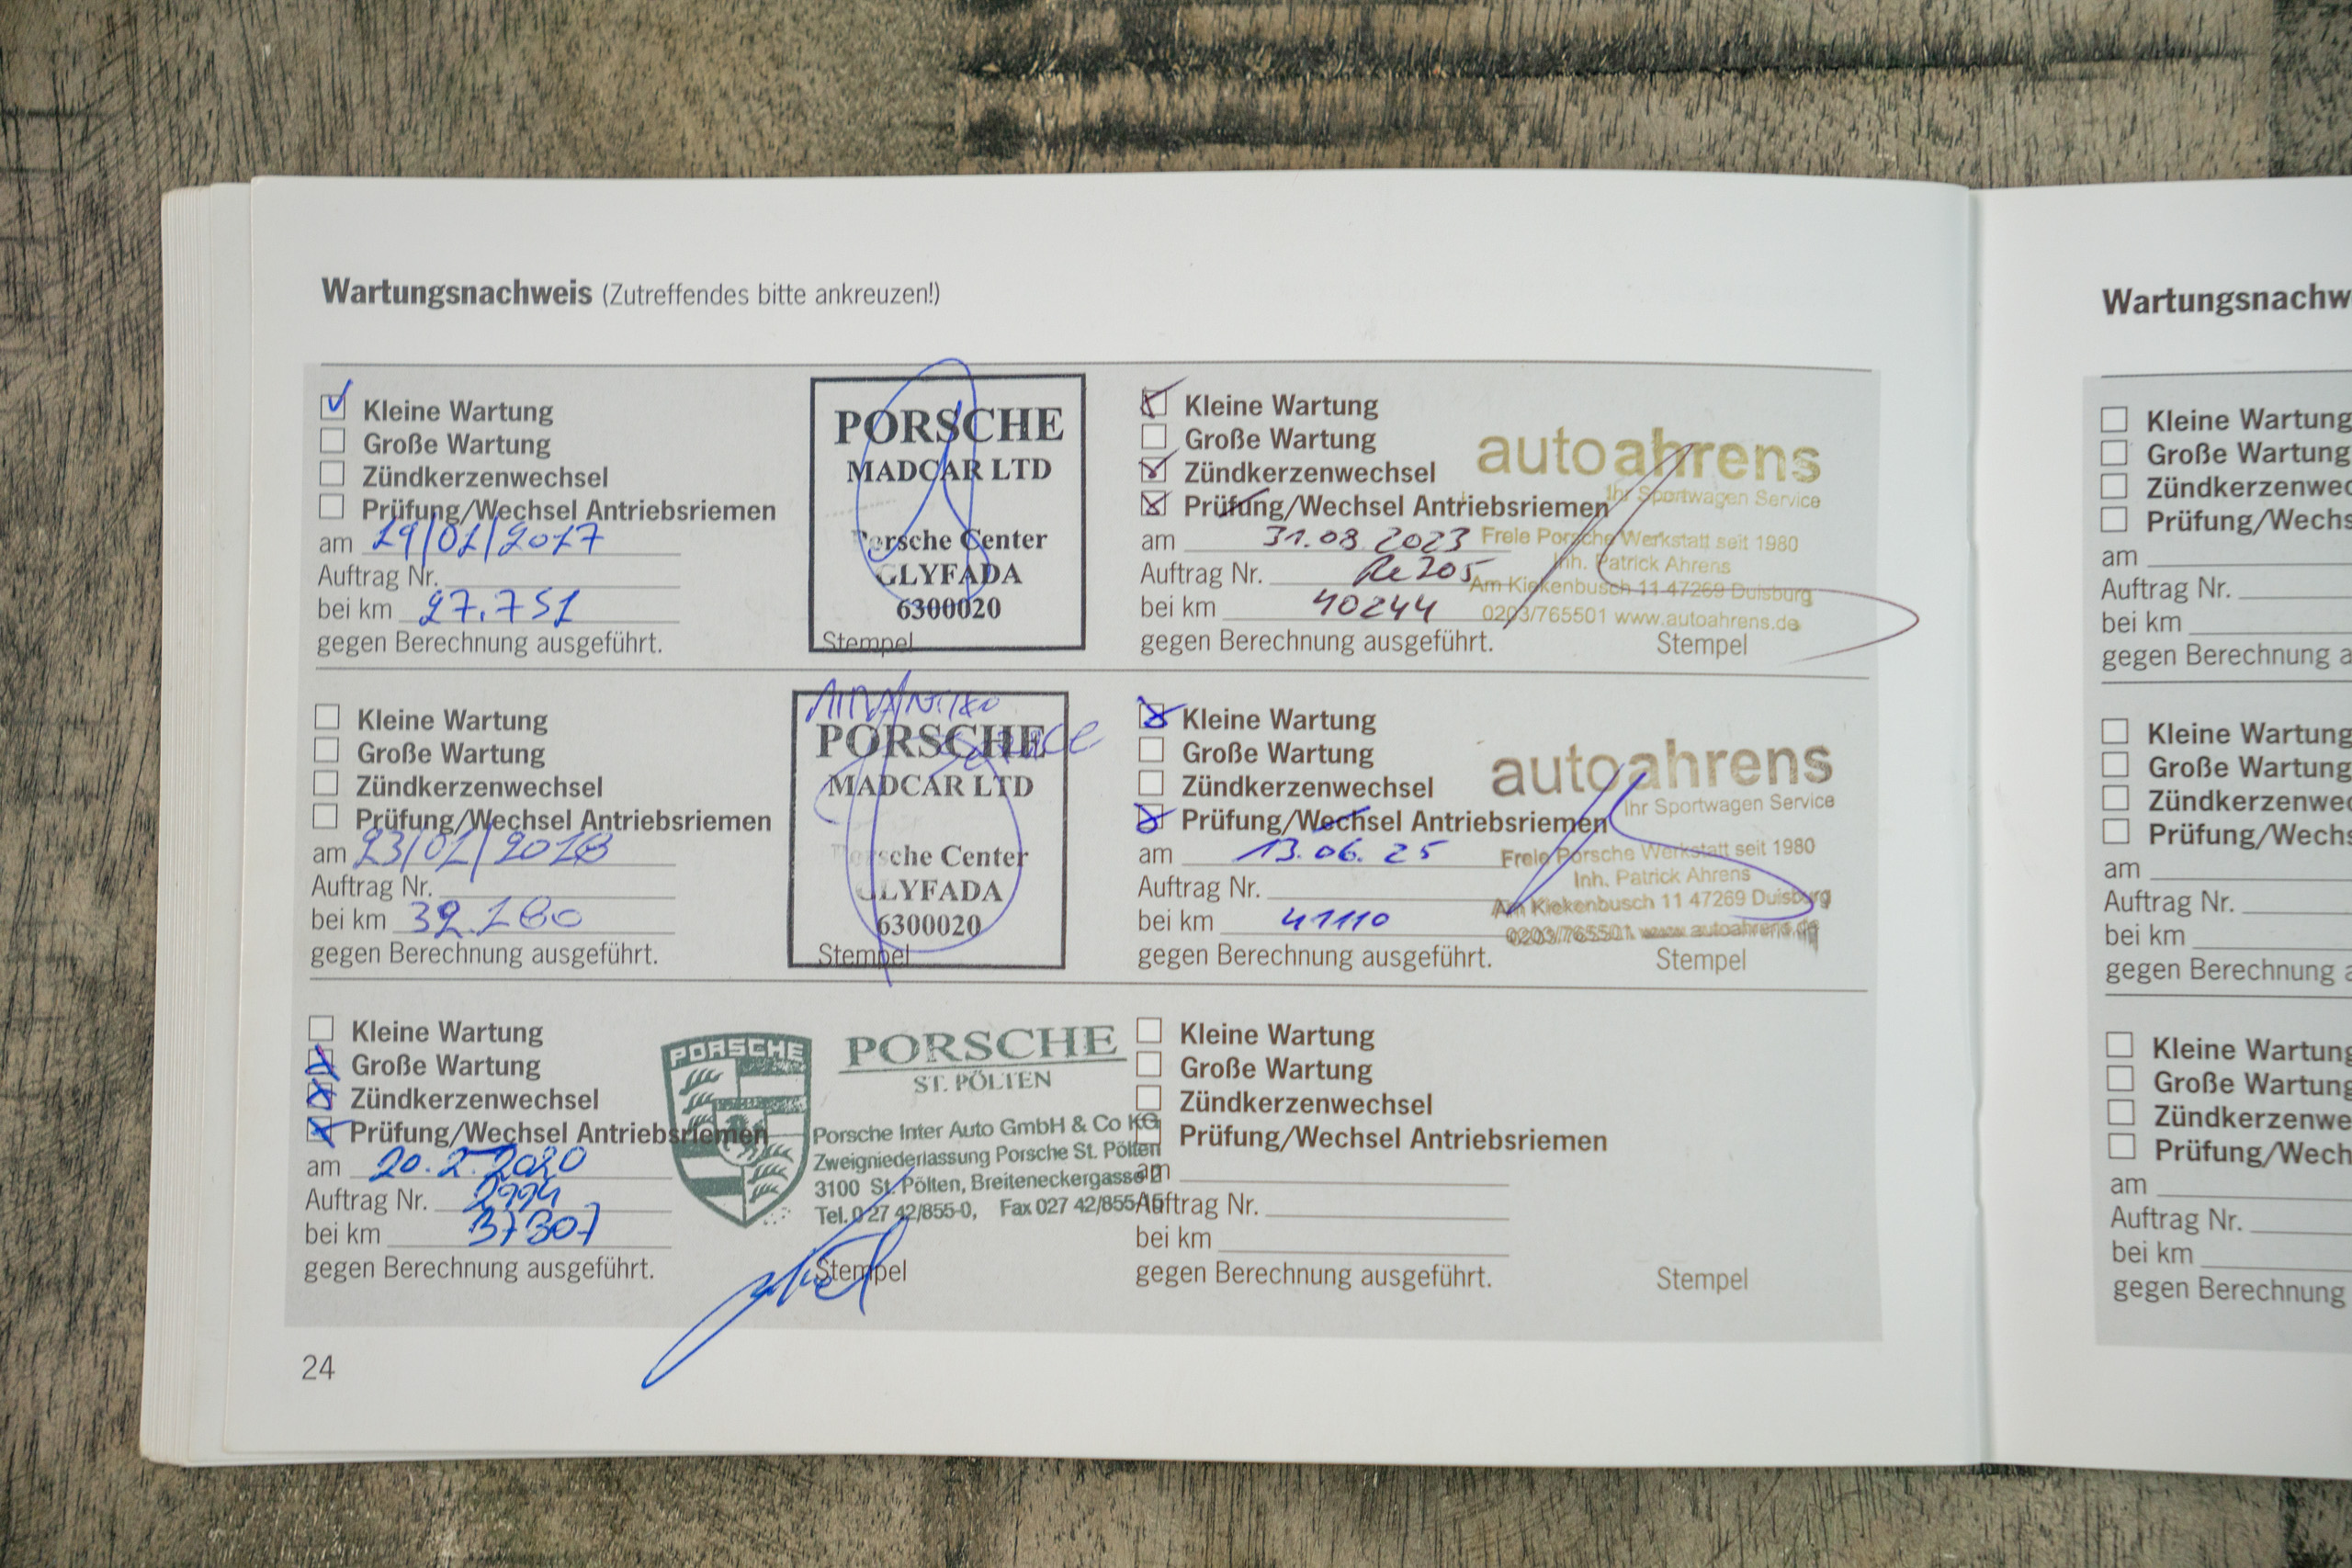 Wartungsnachweis (Zutreffendes bitte ankreuzen!)
Kleine Wartung
Große Wartung
Zündkerzenwechsel
Prüfung/Wechsel Antriebsriemen
am 19/01/2017
Auftrag Nr.
bei km 27.751
gegen Berechnung ausgeführt.
PORSCHE
MADCAR LTD
Porsche Center
GLYFADA
6300020
Stempel
Kleine Wartung
Große Wartung
Zündkerzenwechsel
Prüfung/Wechsel Antriebsriemen
am 23/01/2018
Auftrag Nr.
bei km 32.180
gegen Berechnung ausgeführt.
Service
PORSCHE
MADCAR LTD
Porsche Center
GLYFADA
6300020
Stempel
Kleine Wartung
Große Wartung
Zündkerzenwechsel
Prüfung/Wechsel Antriebsriemen
am 20.2.2020
Auftrag Nr. 2994
bei km 37307
gegen Berechnung ausgeführt.
PORSCHE
PORSCHE
ST. PÖLTEN
Porsche Inter Auto GmbH & Co KG
Zweigniederlassung Porsche St. Pölten
3100 St. Pölten, Breiteneckergasse 2
Tel. 0 27 42/855-0, Fax 027 42/855-15
Stempel
24
Kleine Wartung
Große Wartung
Zündkerzenwechsel
Prüfung/Wechsel Antriebsriemen
am 31.08.2023
Auftrag Nr. Re205
bei km 40244
gegen Berechnung ausgeführt.
autoahrens
Ihr Sportwagen Service
Freie Porsche Werkstatt seit 1980
Inh. Patrick Ahrens
Am Kiekenbusch 11 47269 Duisburg
0203/765501 www.autoahrens.de
Stempel
Kleine Wartung
Große Wartung
Zündkerzenwechsel
Prüfung/Wechsel Antriebsriemen
am 13.06.25
Auftrag Nr.
bei km 41110
gegen Berechnung ausgeführt.
autoahrens
Ihr Sportwagen Service
Freie Porsche Werkstatt seit 1980
Inh. Patrick Ahrens
Am Kiekenbusch 11 47269 Duisburg
0203/765501 www.autoahrens.de
Stempel
Kleine Wartung
Große Wartung
Zündkerzenwechsel
Prüfung/Wechsel Antriebsriemen
am
Auftrag Nr.
bei km
gegen Berechnung ausgeführt.
Stempel
Wartungsnachw
Kleine Wartung
Große Wartung
Zündkerzenwec
Prüfung/Wechs
am
Auftrag Nr.
bei km
gegen Berechnung a
Kleine Wartung
Große Wartung
Zündkerzenwec
Prüfung/Wechs
am
Auftrag Nr.
bei km
gegen Berechnung a
Kleine Wartung
Große Wartung
Zündkerzenwe
Prüfung/Wech
am
Auftrag Nr.
bei km
gegen Berechnung